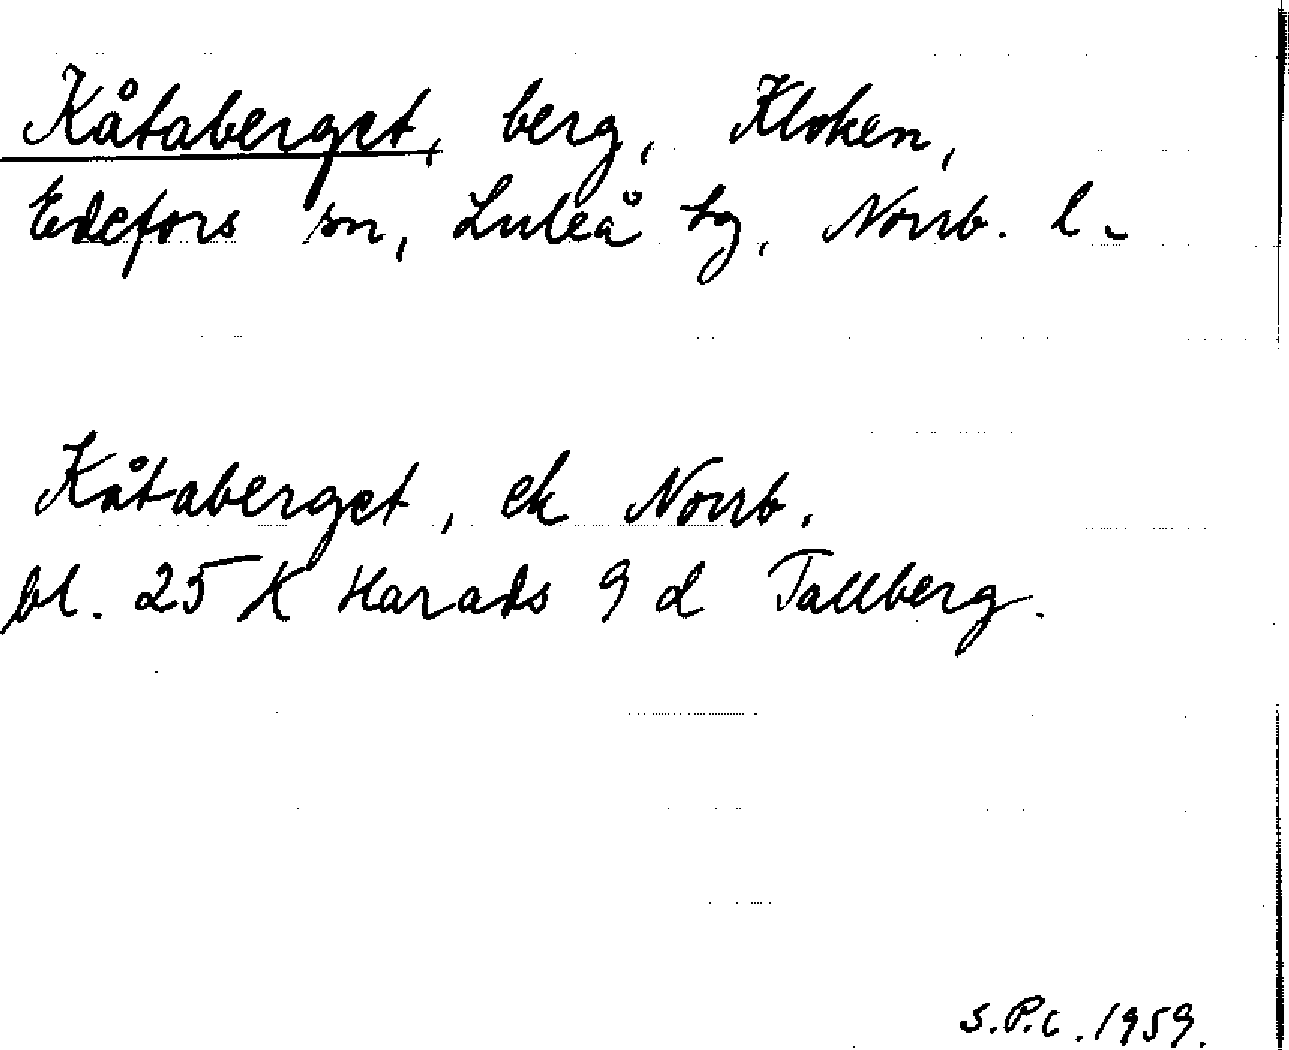 Kåtaberget, berg, Kloken,
Edefors sn, Luleå tg, Norrb. l.
Kåtaberget, ek Norrb.
bl. 25 K Harads 9 d Tallberg.
S.P.C. 1959.